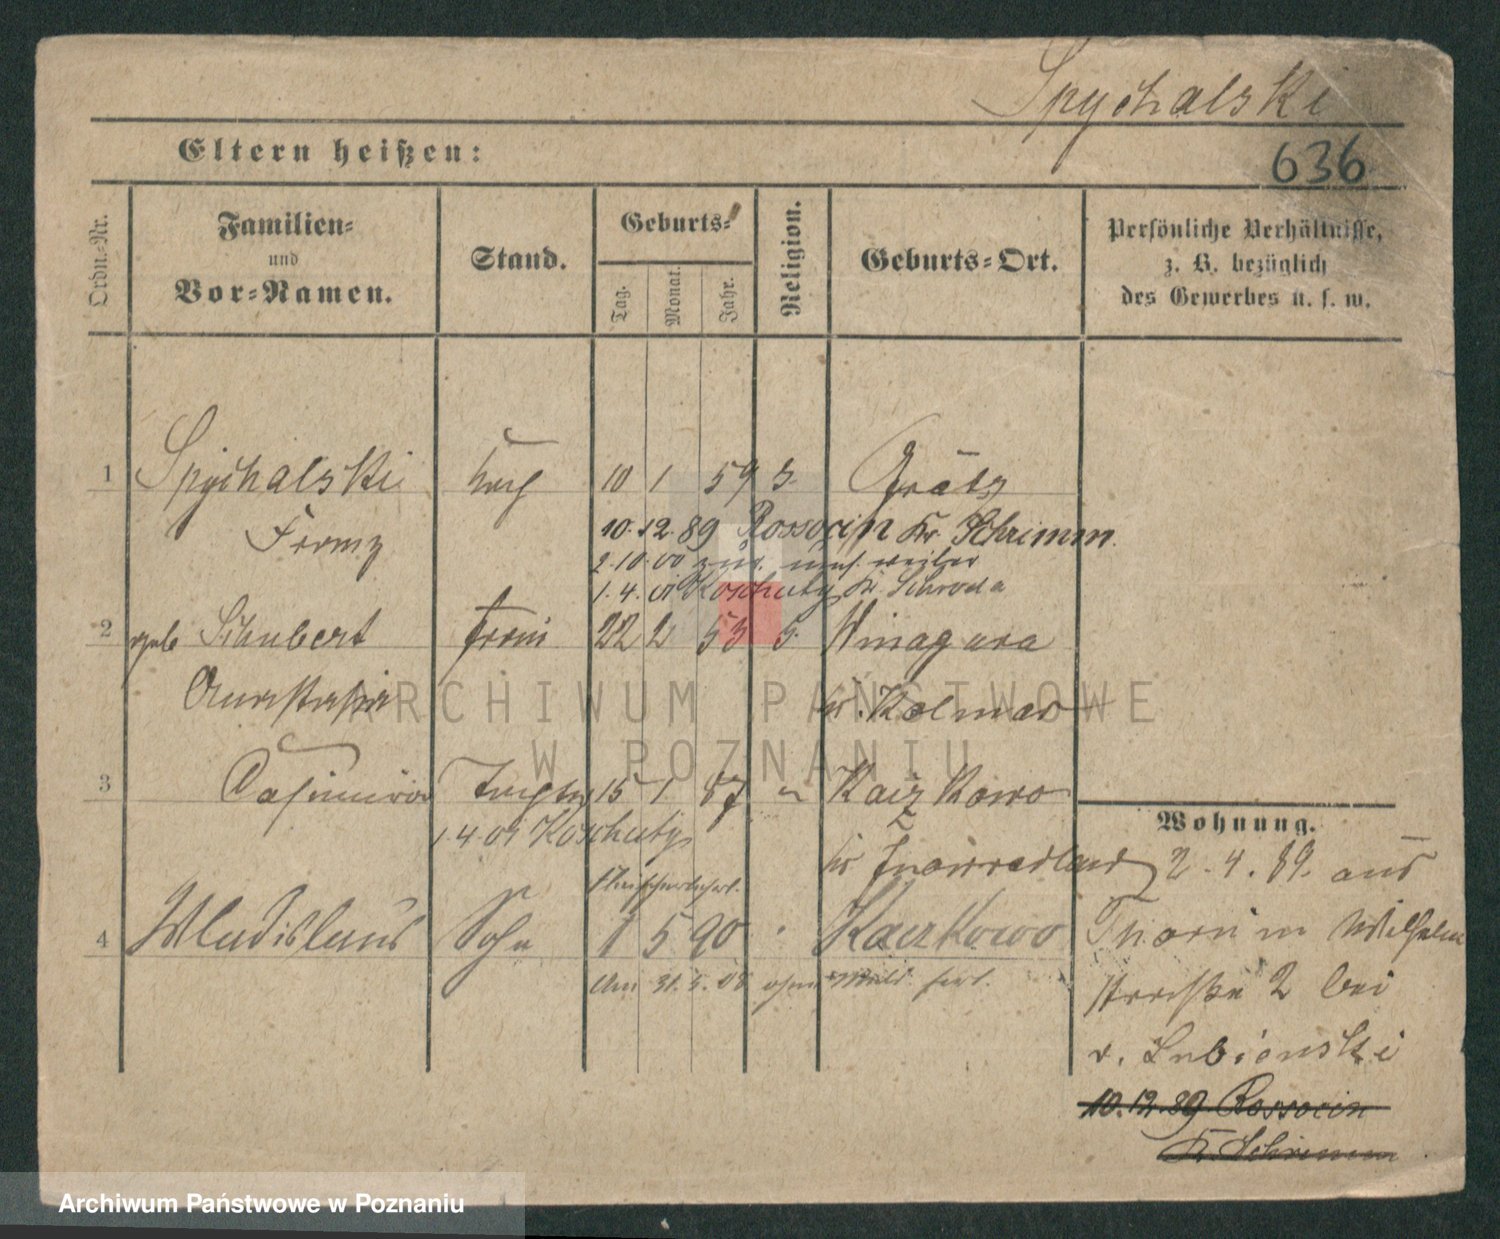 Spychalski
Eltern heißen:
636
Ordn.-Nr.
Familien-
und
Vor-Namen.
Stand.
Geburts-
Tag.
Monat.
Jahr.
Religion.
Geburts-Ort.
Persönliche Verhältnisse,
z. B. bezüglich
des Gewerbes u. s. w.
1 Spychalski 10 1 59 Grätz
Franz
10.12.89 Rossocin Kr. Schrimm.
2.10.00
1.4.01 Koschuty Kr. Schroda
2 geb Schubert Frau 22 2 53 Winagura
Anastasia
Kr. Kolmar
3 Casimira Tochter 15 1 87 Kaczkowo
1.4.01 Koschuty
Kr Inowrazlaw
4 Wladislaus Sohn 1 5 90 Kaczkowo
Am 31.3.08 ohne
Wohnung.
2.4.89. aus
Thorn in Wilhelm
straße 2 bei
v. Lubienski
10.12.89 Rossocin
Kr. Schrimm
ARCHIWUM PAŃSTWOWE
W POZNANIU
Archiwum Państwowe w Poznaniu